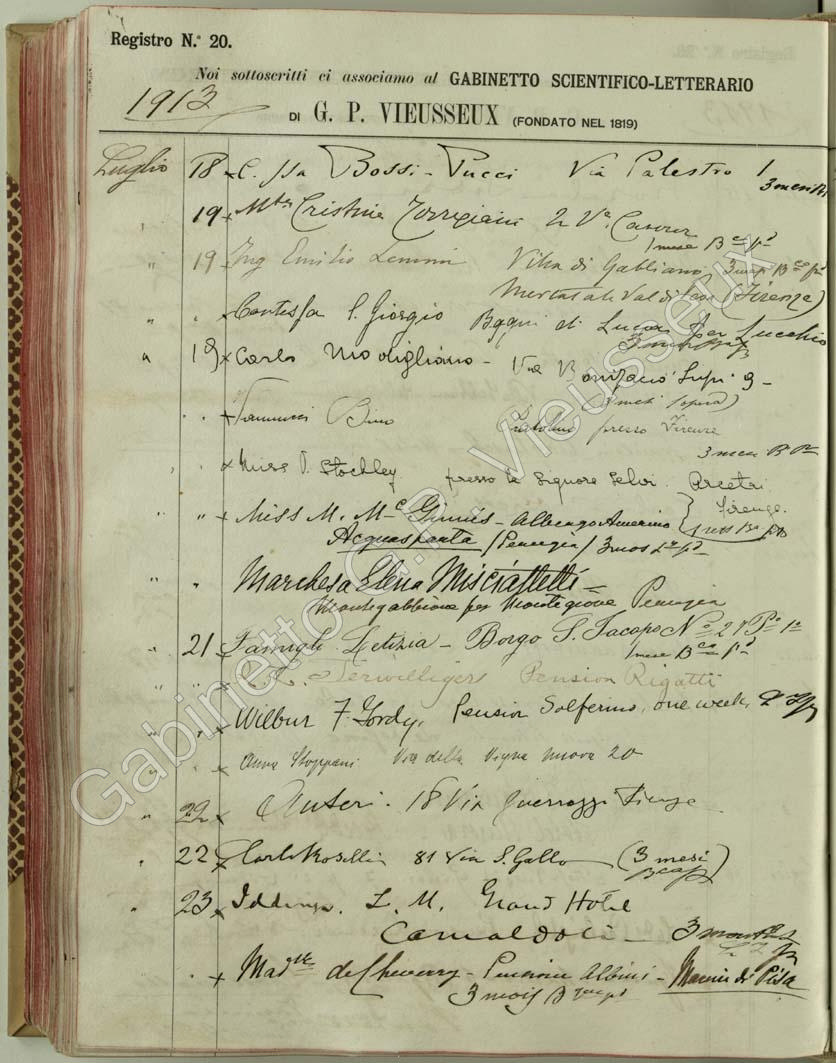 Registro N.° 20.
Noi sottoscritti ci associamo al GABINETTO SCIENTIFICO-LETTERARIO
1913
DI G. P. VIEUSSEUX (FONDATO NEL 1819)
Luglio 18 x C.ssa Bossi-Pucci Via Palestro 1
3 mesi
19 x Cristina Torrigiani 2 Va Cavour
1 mese Bca
" 19 Ing Emilio Lemmi Villa di Gabbiano
Mercatale Val di Pesa (Firenze)
" " x Contessa S. Giorgio Bagni di Lucca per Lucchio
" 19 x Carlo Modigliano - Via Bonifacio Lupi 9 -
" " x Bino Pratolino presso Firenze
3 mesi B
" " x Miss Stockley presso le Signore Selvi. Arcetri
Firenze.
" " x Miss M. Mc Ginnis - Albergo Amerino
Acquasparta (Perugia) 3 mos
" " Marchesa Elena Misciattelli =
Montegabbione per Montegiove Perugia
" 21 x Famigli Letizia - Borgo S. Jacopo No 27 Po 1o
1 mese Bca
" " x Terwilliger Pension Rigatti
" " x Wilbur F. Gordy, Pension Solferino, one week,
" " x Anna Stoppani Via della Vigna Nuova 20
" 22 x Auteri. 18 Via Guerrazzi Firenze
" 22 x Carlo Rosellin 81 Via S. Gallo (3 mesi)
" 23 x Iddings. L. M. Grand Hotel
Camaldoli - 3 months
" x Mad de Cheverry - Pensione Albini - Marina di Pisa
3 mois B
Gabinetto G.P. Vieusseux